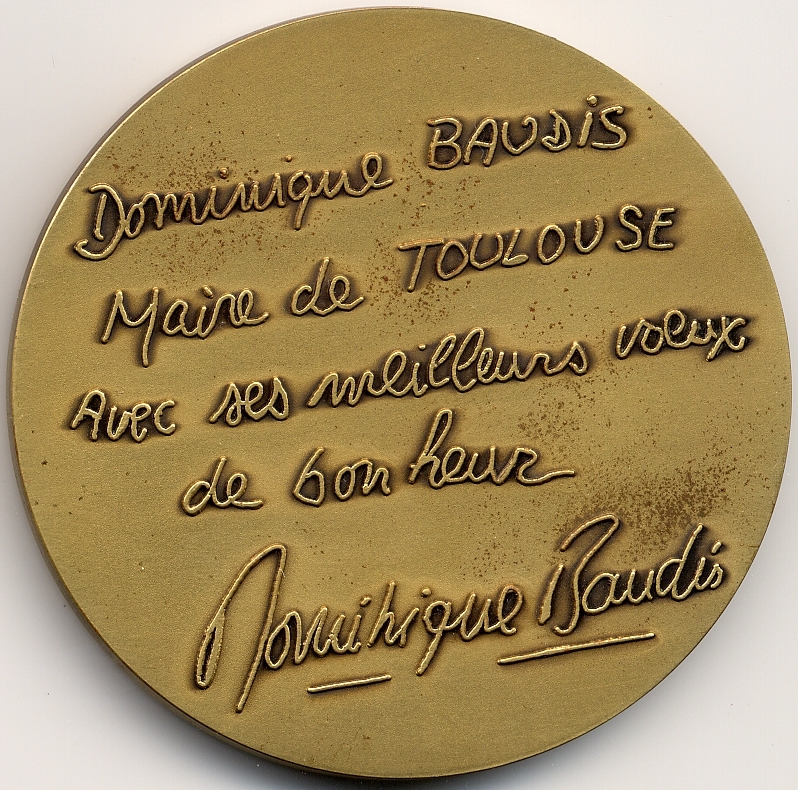 Dominique BAUDIS
Maire de TOULOUSE
Avec ses meilleurs voeux
de bonheur
Dominique Baudis